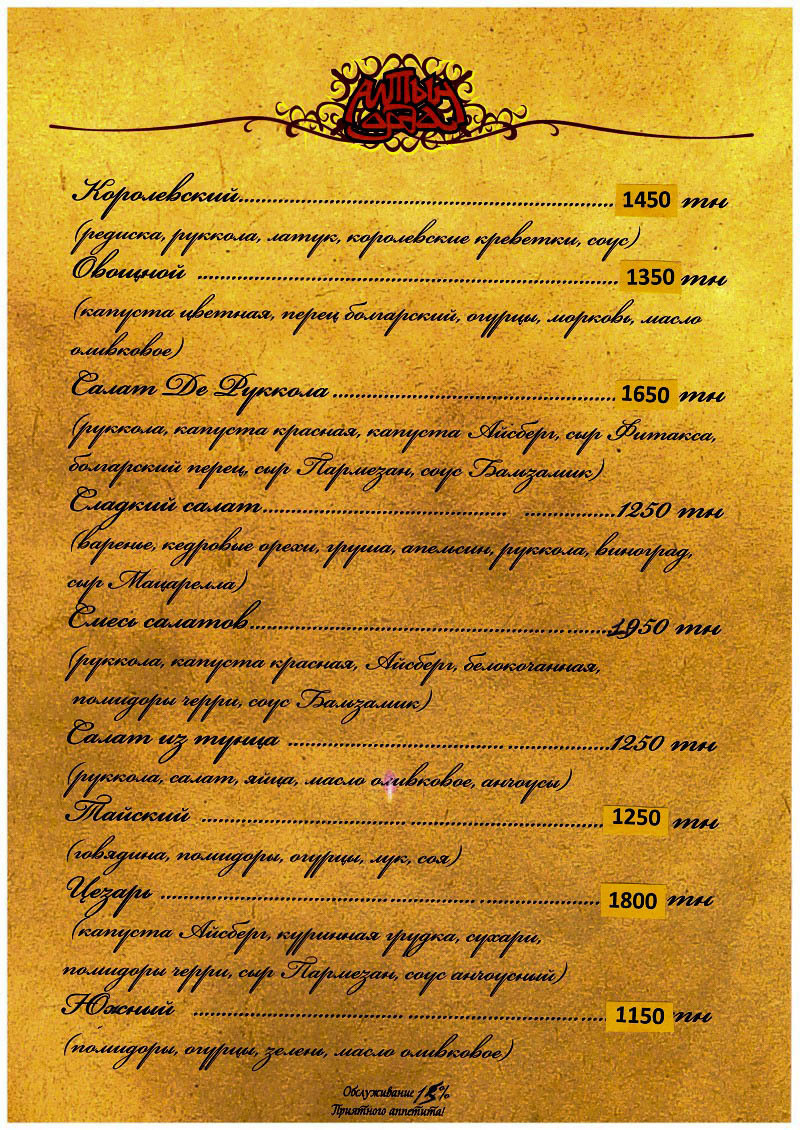 Алтын
Королевский 1450 тн
(редиска, руккола, латук, королевские креветки, соус)
Овощной 1350 тн
(капуста цветная, перец болгарский, огурцы, морковь, масло
оливковое)
Салат Де Руккола 1650 тн
(руккола, капуста красная, капуста Айсберг, сыр Фитакса,
болгарский перец, сыр Пармезан, соус Бальзамик)
Сладкий салат 1250 тн
(варенье, кедровые орехи, груша, апельсин, руккола, виноград,
сыр Мацарелла)
Смесь салатов 1950 тн
(руккола, капуста красная, Айсберг, белокочанная,
помидоры черри, соус Бальзамик)
Салат из тунца 1250 тн
(руккола, салат, яйца, масло оливковое, анчоусы)
Тайский 1250 тн
(говядина, помидоры, огурцы, лук, соя)
Цезарь 1800 тн
(капуста Айсберг, куринная грудка, сухари,
помидоры черри, сыр Пармезан, соус анчоусный)
Южный 1150 тн
(помидоры, огурцы, зелень, масло оливковое)
Обслуживание
Приятного аппетита!